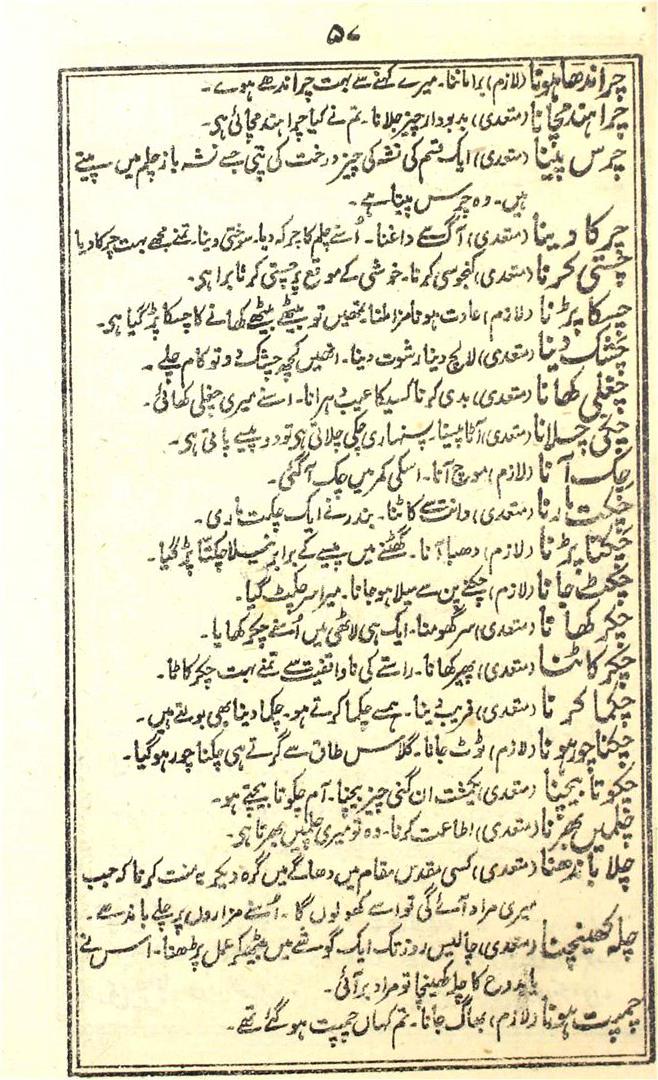 ۵۷
چراندھا ہونا (لازم) برا ماننا۔ میرے کہنے سے بہت چراندھے ہوے۔
چراہند مچانا (متعدی) بدبودار چیز جلانا۔ تم نے کیا چراہند مچائی ہی۔
چرس پینا (متعدی) ایک قسم کی نشہ کی چیز درخت کی پتی جسے نشہ باز چلم میں پیتے
ہیں۔ وہ چرس پیتا ہے۔
چرکا دینا (متعدی) آگ سے داغنا۔ اُسنے چلم کا چرکہ دیا۔ سوختی دینا۔ تمنے مجھے بہت چرکا دیا
چستی کرنا (متعدی) کنجوسی کرنا۔ خوشی کے موقع پر چستی کرنا برا ہی۔
چسکا پڑنا (لازم) عادت ہونا مزا ملنا تمھیں تو بیٹھے بیٹھے کھانے کا چسکا پڑ گیا ہی۔
چشک دینا (متعدی) لالچ دینا رشوت دینا۔ انھیں کچھ چشک دو تو کام چلے۔
چغلی کھانا (متعدی) بدی کرنا کسیکا عیب دہرانا۔ اسنے میری چغلی کھائی۔
چکی چلانا (متعدی) آٹا پیسنا۔ پسنہاری چکی چلاتی ہی تو دو پیسے پاتی ہی۔
چک آنا (لازم) موچ آنا۔ اسکی کمر میں چک آگئی۔
چکت مارنا (متعدی) دانت سے کاٹنا۔ بندر نے ایک چکت ماری۔
چکتا پڑنا (لازم) دھبا آنا۔ گھٹنے میں پیسے کے برابر نیلا چکتا پڑ گیا۔
چکٹ جانا (لازم) چکنے پن سے میلا ہو جانا۔ میرا سر چکٹ گیا۔
چکر کھانا (متعدی) سر گھومنا۔ ایک ہی لاٹھی میں اُسنے چکر کھایا۔
چکر کاٹنا (متعدی) پھیر کھانا۔ راستے کی ناواقفیت سے تمنے بہت چکر کاٹا۔
چکما کرنا (متعدی) فریب دینا۔ ہمسے چکما کرتے ہو۔ چکما دینا بھی بولتے ہیں۔
چکنا چور ہونا (لازم) ٹوٹ جانا۔ گلاس طاق سے گرتے ہی چکنا چور ہوگیا۔
چکوتا بیچنا (متعدی) یکمشت ان گنی چیز بیچنا۔ آم چکوتا بیچتے ہو۔
چلمیں بھرنا (متعدی) اطاعت کرنا۔ وہ تو میری چلمیں بھرتا ہی۔
چلا باندھنا (متعدی) کسی مقدس مقام میں دھاگے میں گرہ دیکر یہ منت کرنا کہ جب
میری مراد آئے گی تو اسے کھولوں گا۔ اُسنے مزاروں پر چلے باندھے۔
چلہ کھینچنا (متعدی) چالیس روز تک ایک گوشے میں بیٹھ کر عمل پڑھنا۔ اس نے
یابدوح کا چلہ کھینچا تو مراد بر آئی۔
چمپت ہونا (لازم) بھاگ جانا۔ تم کہاں چمپت ہوگئے تھے۔